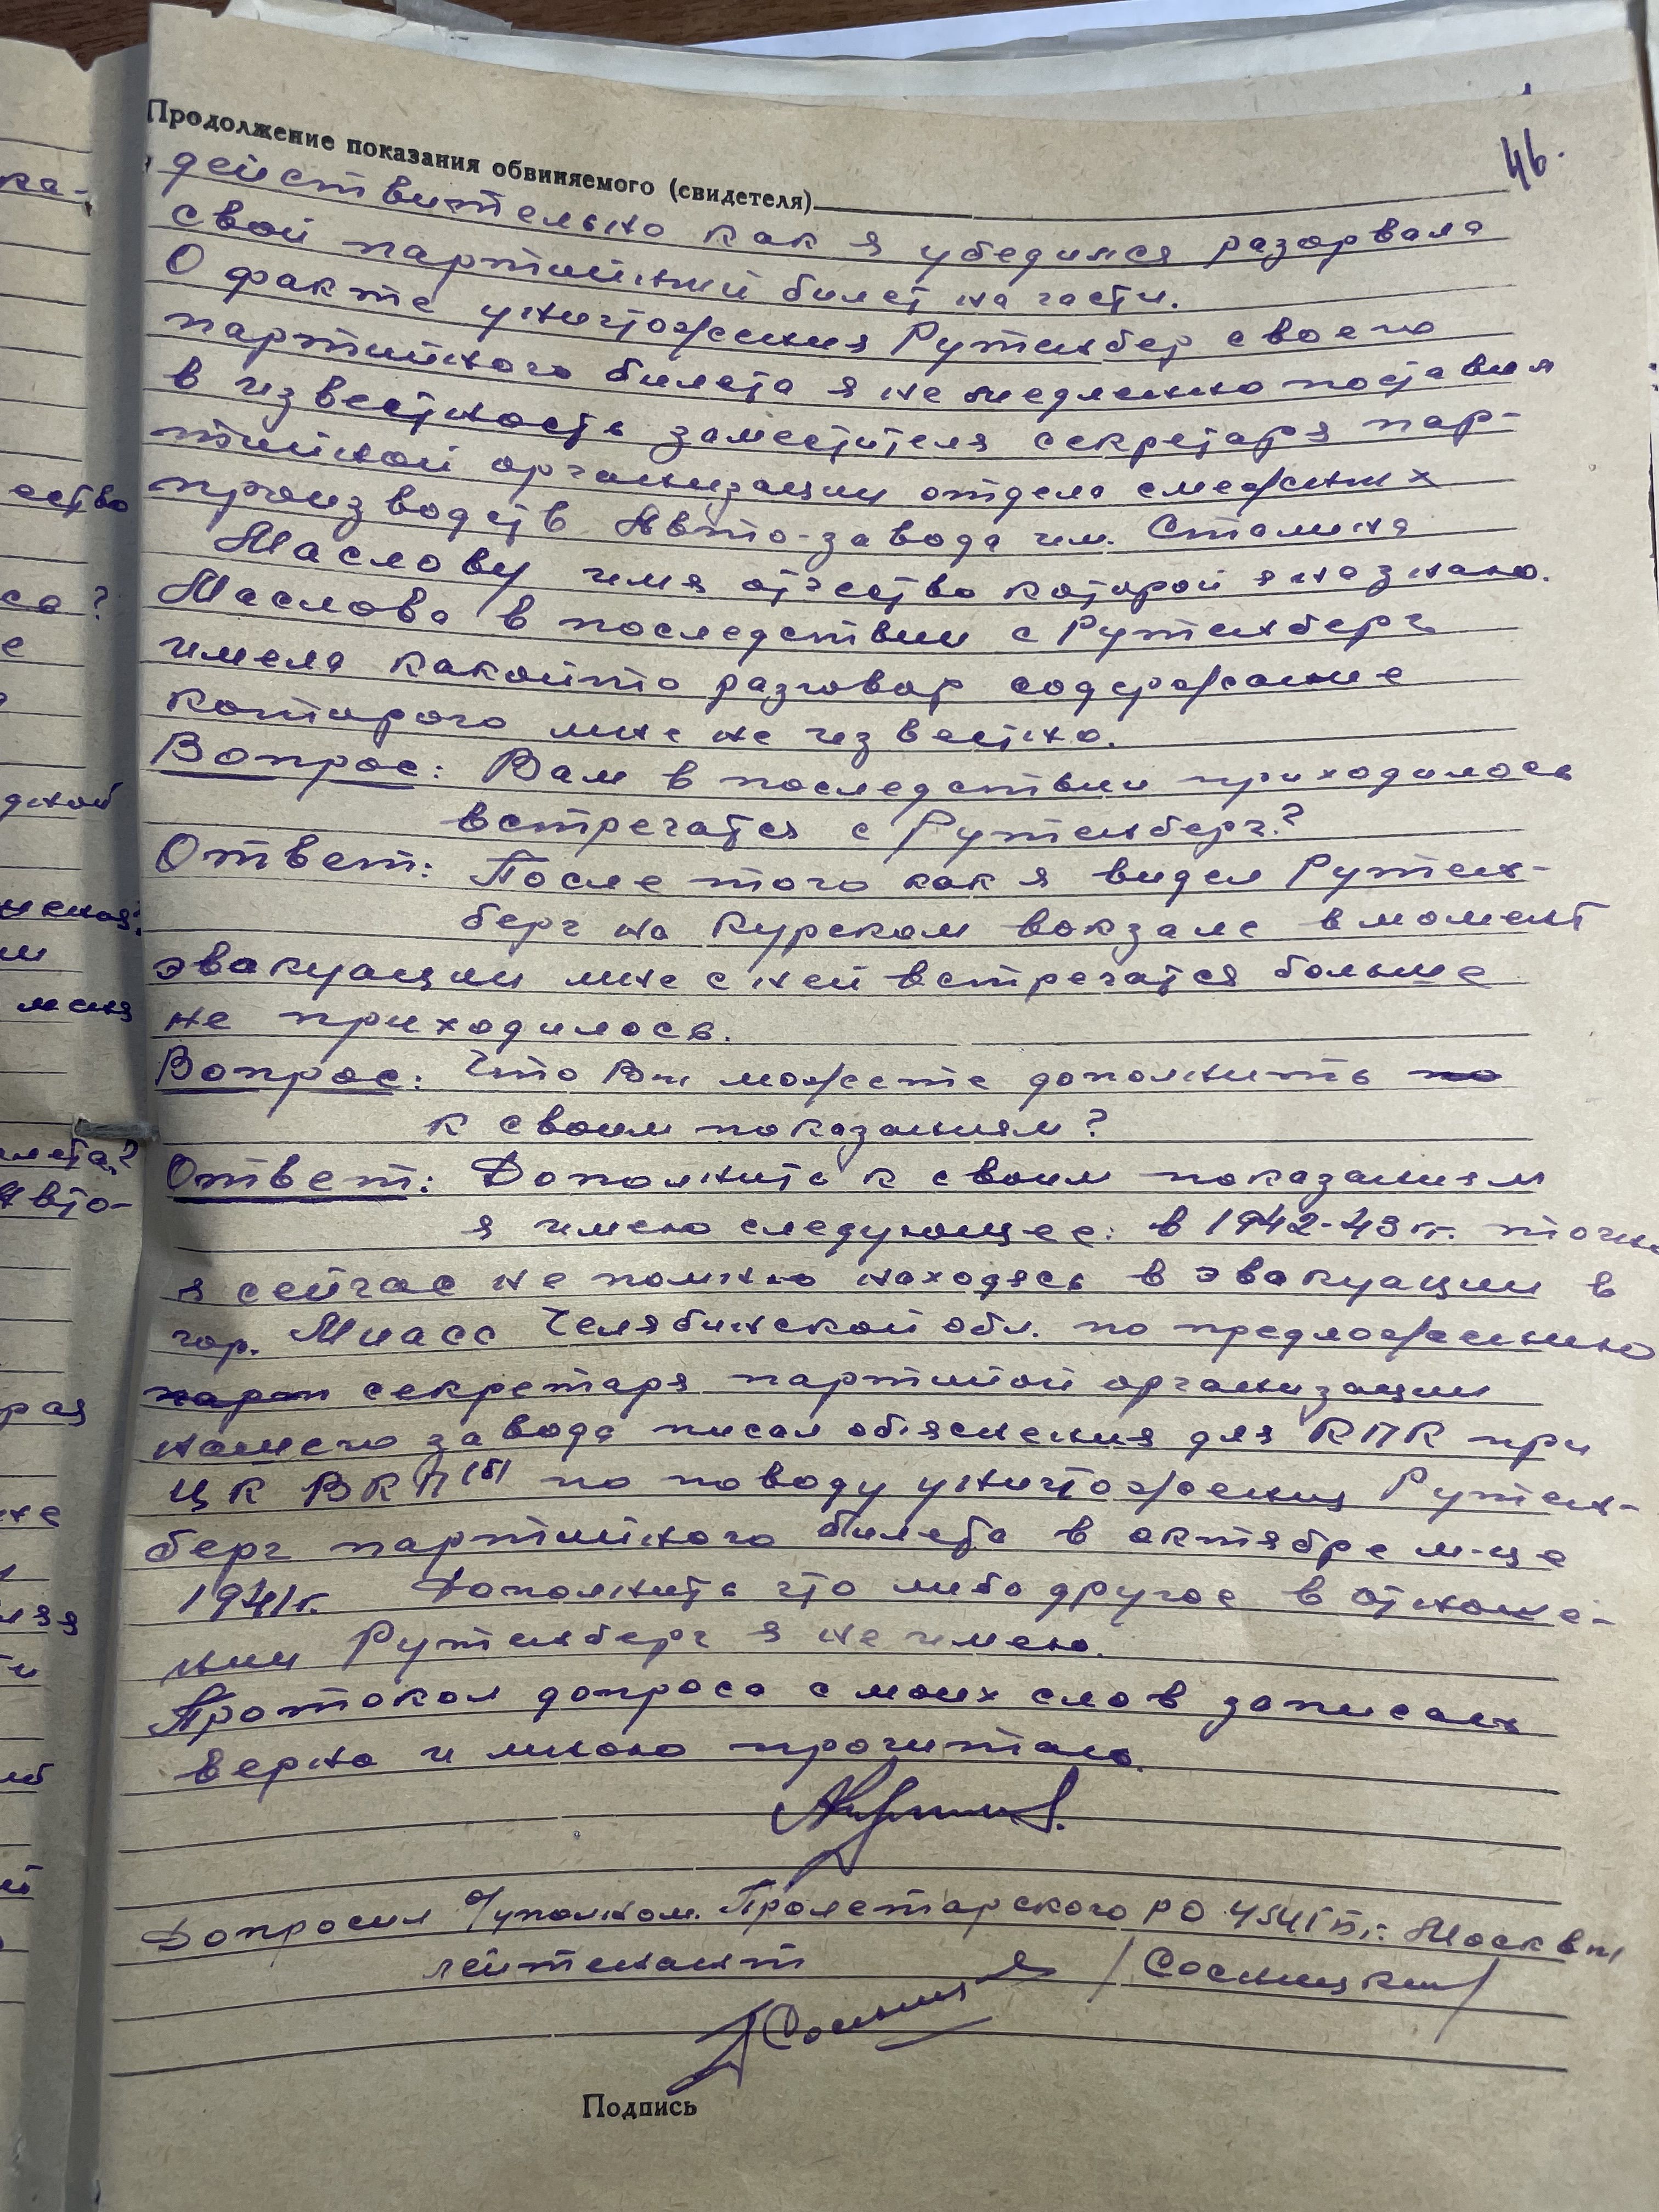 Продолжение показания обвиняемого (свидетеля)
46.
действительно как я убедился разорвала
свой партийный билет на части.
О факте уничтожения Рутенбер своего
партийного билета я не медленно поставил
в известность заместителя секретаря пар-
тийной организации отдела смежных
производств Авто-завода им. Сталина
Маслову имя отчество которой я на знаю.
Маслова в последствии с Рутенберг
имела какойто разговор содержание
которого мне не известно.
Вопрос: Вам в последствии приходилось
встречатся с Рутенберг?
Ответ: После того как я видел Рутен-
берг на Курском вокзале в момент
эвакуации мне с ней встречатся больше
не приходилось.
Вопрос: Что Вы можете дополнить по
к своим показаниям?
Ответ: Дополнить к своим показаниям
я имею следующее: в 1942-43 гг. точно
я сейчас не помню находясь в эвакуации в
гор. Миасс Челябинской обл. по предложению
парт секретаря партийной организации
нашего завода писал обяснения для КПК при
ЦК ВКП(б) по поводу уничтожения Рутен-
берг партийного билета в октябре м-це
1941 г. Дополнить что либо другое в отноше-
нии Рутенберг я не имею.
Протокол допроса с моих слов записан
верно и мною прочитано.
Допросил о/уполном. Пролетарского РО УМГБ г. Москвы
лейтенант / Сосницкий /
Подпись
ка-
ество
са?
е
дной
м
меня
лета?
Авто-
рая
не